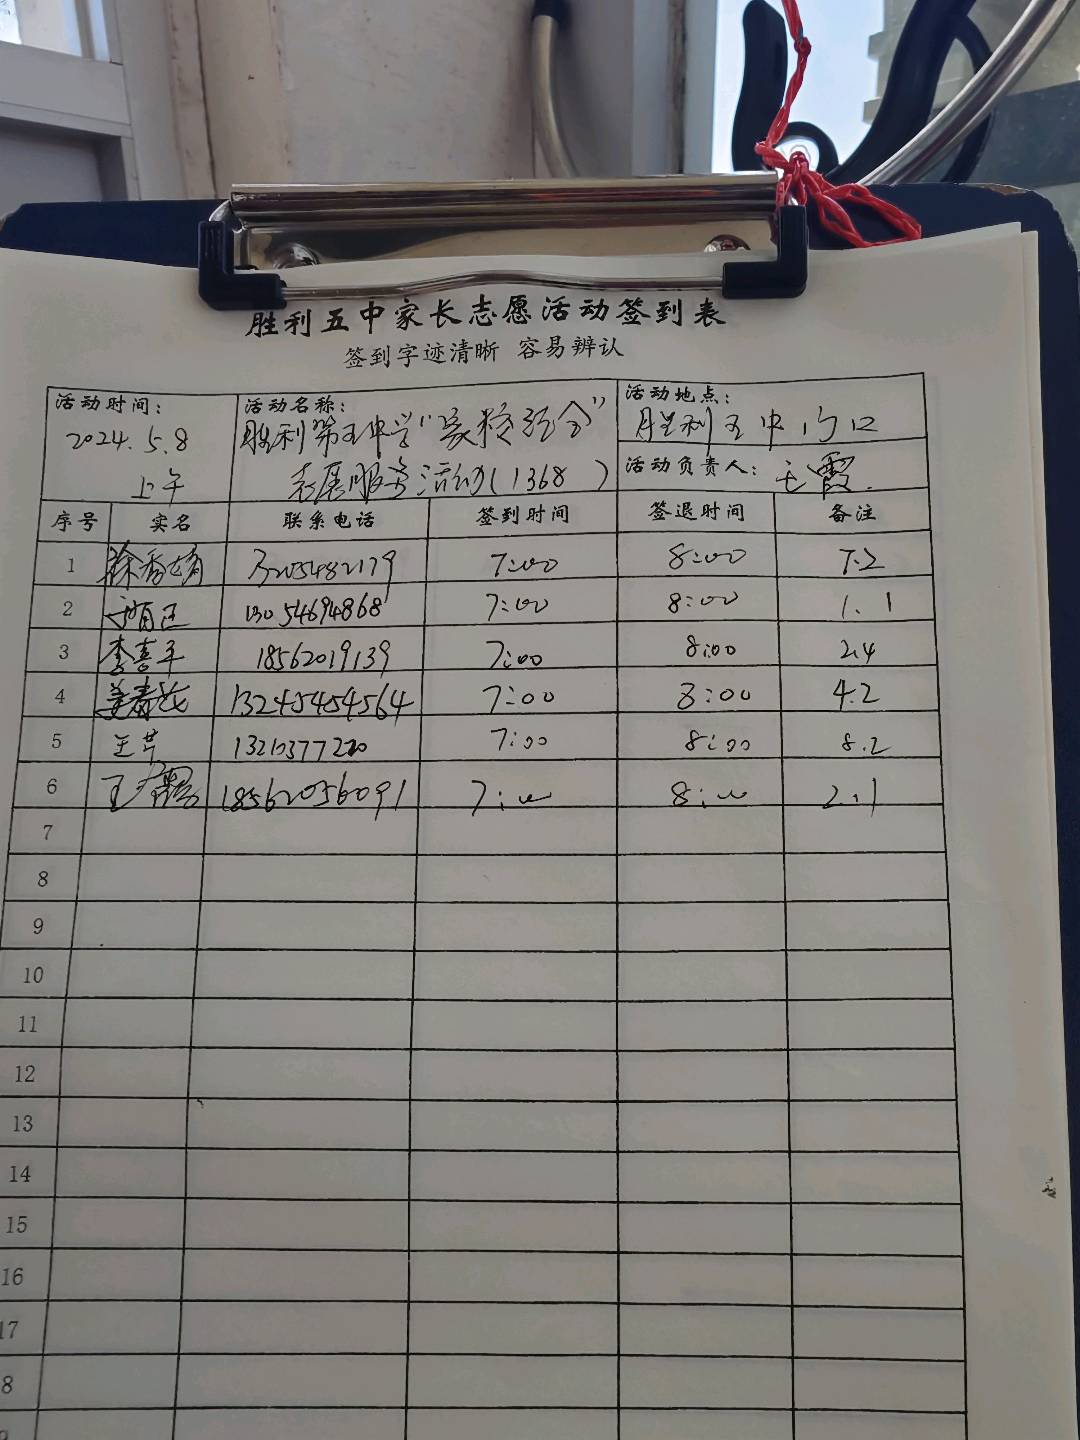 胜利五中家长志愿活动签到表
签到字迹清晰 容易辨认
活动时间: 2024.5.8 上午
活动名称: 胜利第五中学"家校
服务活动(1368)
活动地点: 胜利五中门口
活动负责人: 王霞
序号 实名 联系电话 签到时间 签退时间 备注
1 13205482179 7:00 8:00 7.2
2 13054694868 7:00 8:00 1.1
3 李喜平 18562019139 7:00 8:00 2.4
4 姜春 13245454564 7:00 8:00 4.2
5 王芹 7:00 8:00 8.2
6 王 18562056091 7:00 8:00 2.1
7
8
9
10
11
12
13
14
15
16
17
8